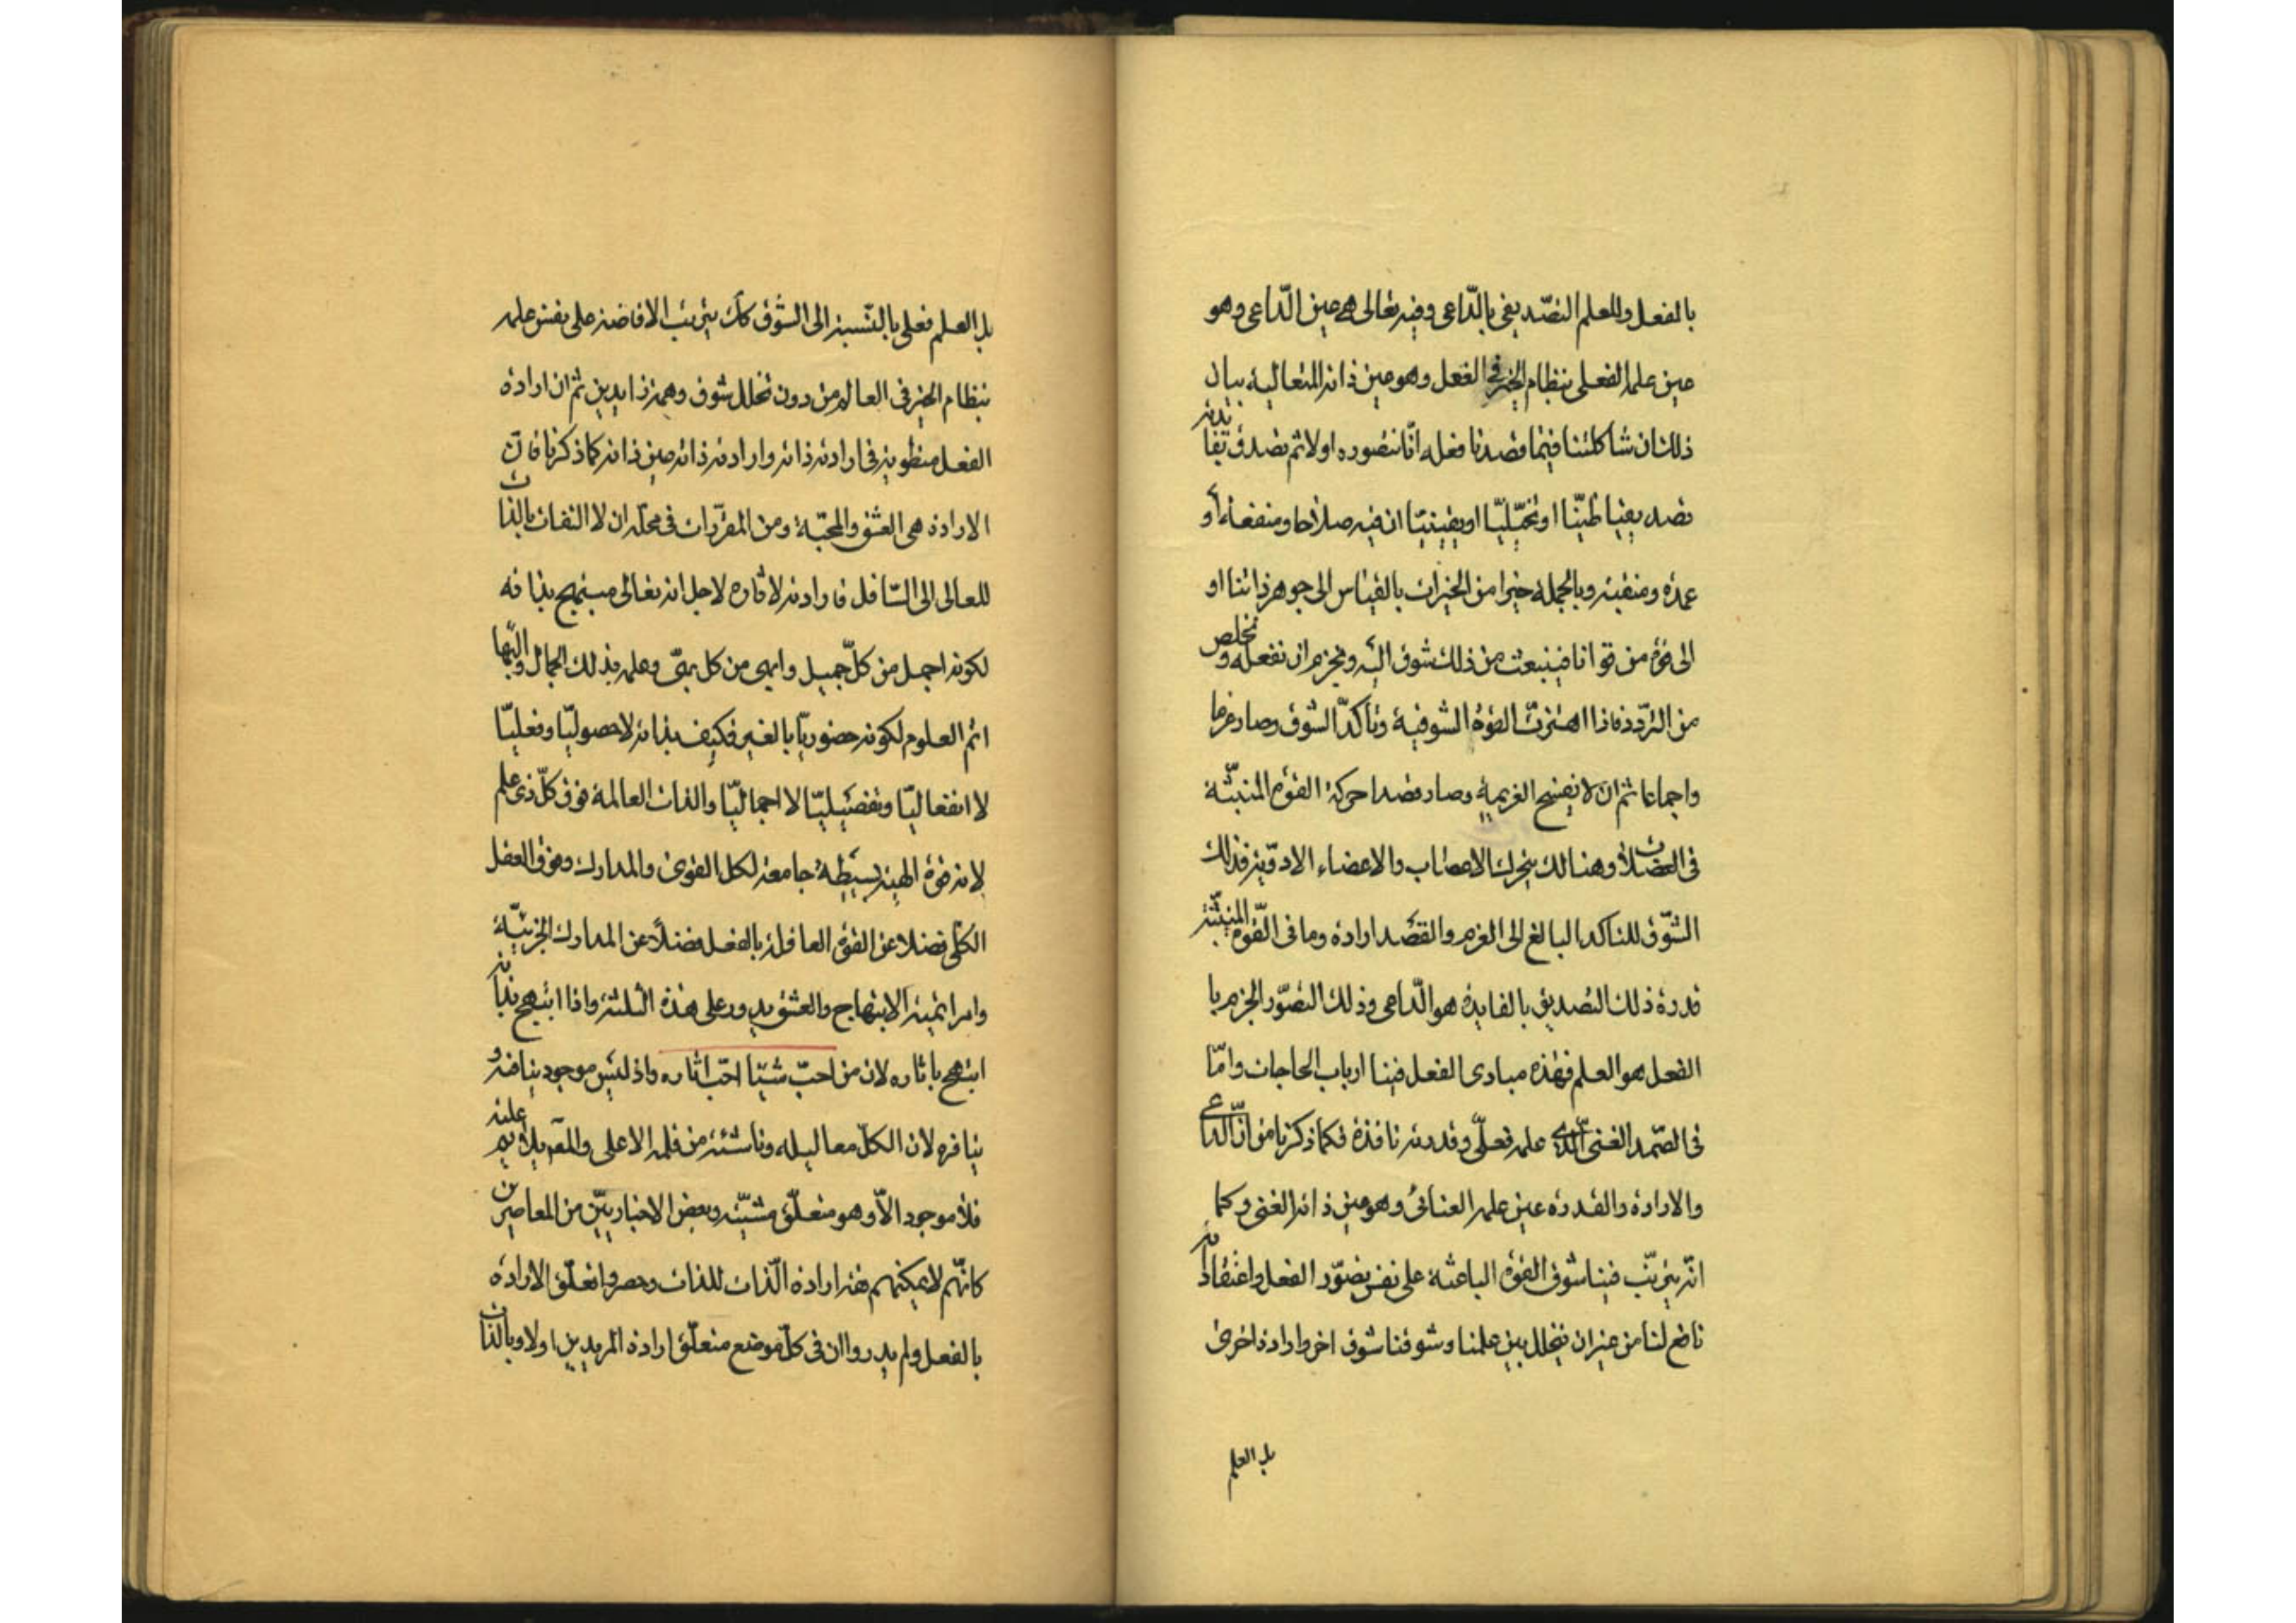 بالفعل وللعلم التصديقى بالداعى وفيه تعالى هى عين الداعى وهو
عين علمه الفعلى بنظام الخير فى الفعل وهو عين ذاته المتعالية بيان
ذلك ان شاكلتنا فيما قصدنا فعله انا نتصوره اولا ثم نصدق بفائدته
تصديقيا ظنيا او تخيليا او يقينيا ان فيه صلاحا ومنفعة او
محمدة ومنقبة وبالجملة خيرا من الخيرات بالقياس الى جوهر ذاتنا او
الى قوة من قوانا فينبعث من ذلك شوق اليه ونجزم ان نفعله ونخلص
من التردد فاذا اهتزت القوة الشوقية وتأكد الشوق وصار عزما
واجماعا ثم ان لا يفسخ العزيمة وصار قصدا حركة القوة المنبثة
فى العضلات وهنالك يتحرك الاعصاب والاعضاء الادوية فذلك
الشوق المتاكد البالغ الى العزم والقصد ارادة وما فى القوة المنبثة
قدرة ذلك التصديق بالفايدة هو الداعى وذلك التصور الجزم با
الفعل هو العلم فهذه مبادى الفعل فينا ارباب الحاجات واما
فى الصمد الغنى الذى علمه فعلى وقدرته نافذة فكما ذكرنا من ان الداعى
والارادة والقدرة عين علمه العنائى وهو عين ذاته الغنى وكما
انه يترتب فينا شوق القوة الباعثة على نفس تصور الفعل واعتقاد انه
نافع لنا من غير ان يتخلل بين علمنا وشوقنا شوق اخر وارادة اخرى
بل العلم
بل العلم فعلى بالنسبة الى الشوق كك يترتب الافاضة على نفس علمه
بنظام الخير فى العالم من دون تخلل شوق وهمة زايدين ثم ان ارادة
الفعل منطوية فى ارادة ذاته وارادة ذاته عين ذاته كما ذكرنا فان
الارادة هى العشق والمحبة ومن المقررات فى محله ان لا التفات بالذات
للعالى الى السافل فارادته لاثاره لاجل انه تعالى مبتهج بذاته
لكونه اجمل من كل جميل وابهى من كل بهى وعلمه بذلك الجمال والبهاء
اتم العلوم لكونه حضوريا بالغير فكيف بذاته لا حصوليا وفعليا
لا انفعاليا وتفصيليا لا اجماليا والذات العالمة فوق كل ذى علم
لانه قوة الهية بسيطة جامعة لكل القوى والمدارك وفوق العقل
الكلى فضلا عن القوة العاقلة بالفعل فضلا عن المدارك الجزئية
وامر اتمية الابتهاج والعشق يدور على هذه الثلثة واذا ابتهج بذاته
ابتهج باثاره لان من احب شيئا احب اثاره واذ ليس موجود ينافيه و
ينافره لان الكل معاليله وناشئة من قلمه الاعلى والمعلول يلائم علته
فلا موجود الا وهو متعلق مشيته وبعض الاخباريين من المعاصرين
كانهم لا يمكنهم فهم ارادة الذات للذات وحصروا تعلق الارادة
بالفعل ولم يدروا ان فى كل موضع متعلق ارادة المريدين اولا وبالذات